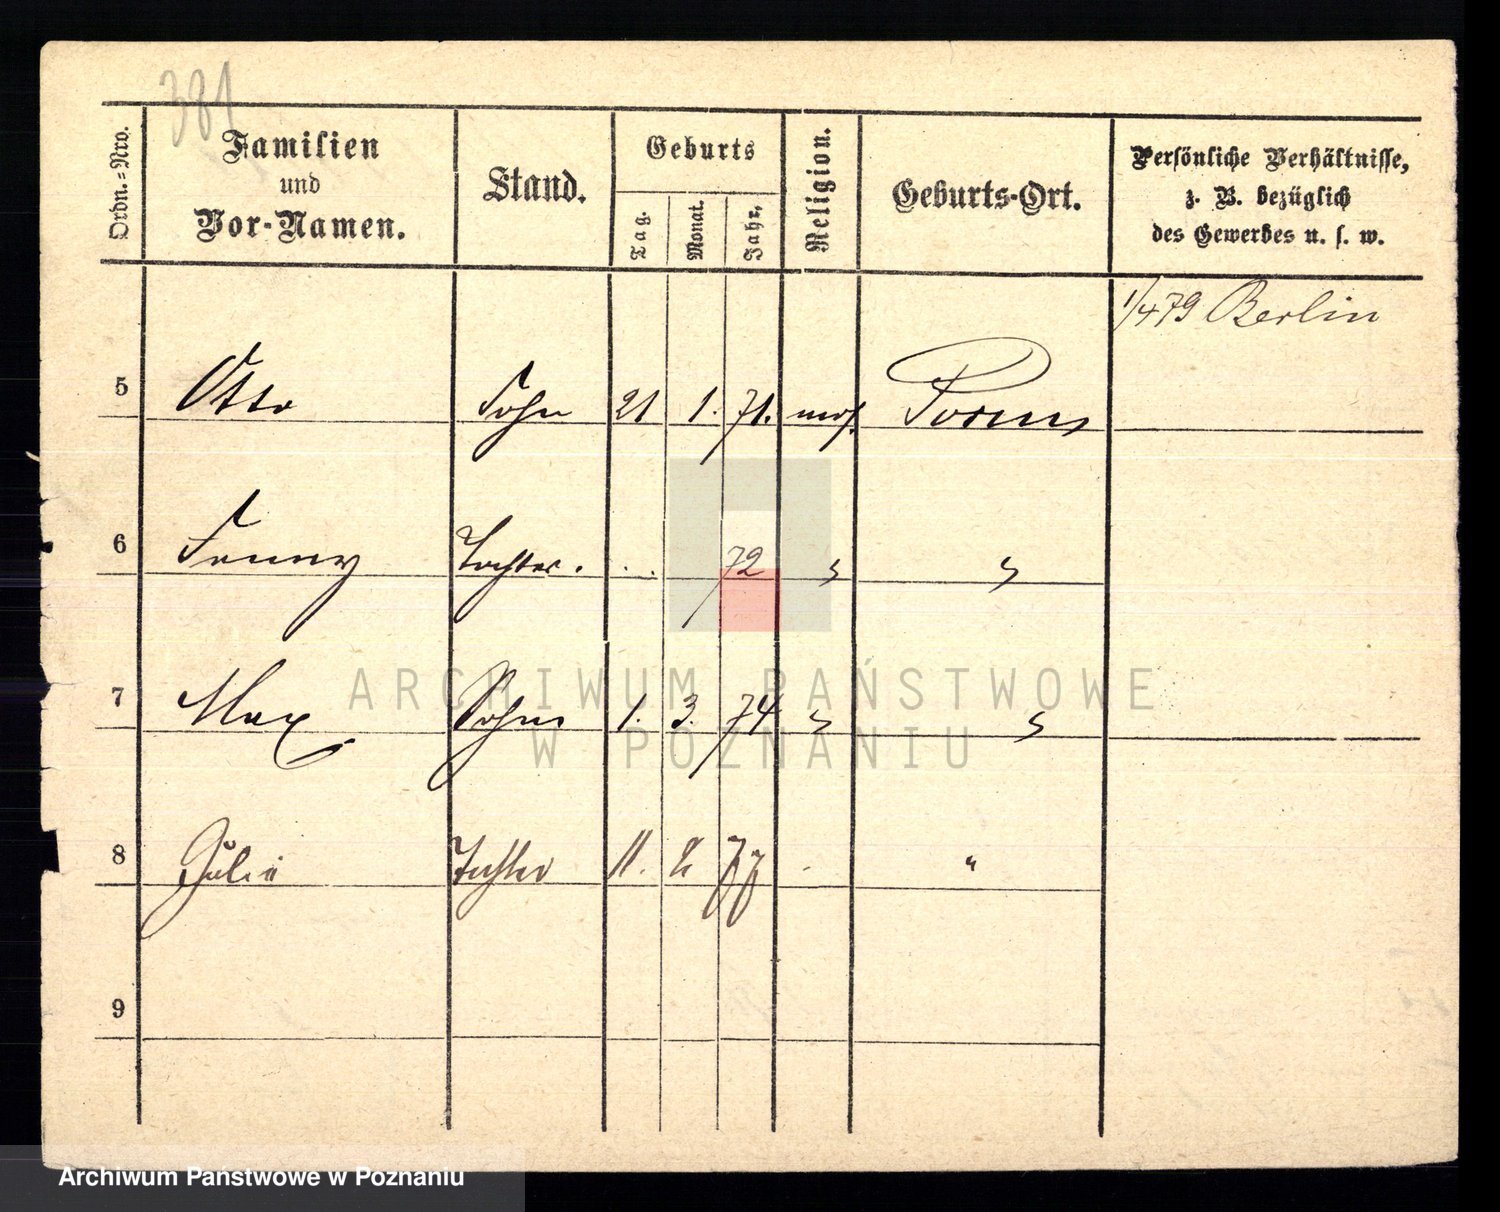 381
Ordn.-Nro.
Familien
und
Vor-Namen.
Stand.
Geburts
Tag.
Monat.
Jahr.
Religion.
Geburts-Ort.
Persönliche Verhältnisse,
z. B. bezüglich
des Gewerbes u. s. w.
1/4 79 Berlin
5 Otto Sohn 21 1. 71. mos. Posen
6 Fanny Tochter. . . 72 " "
7 Max Sohn 1. 3. 74 " "
8 Julie Tochter 11. 2 77 "
9
ARCHIWUM PAŃSTWOWE
W POZNANIU
Archiwum Państwowe w Poznaniu